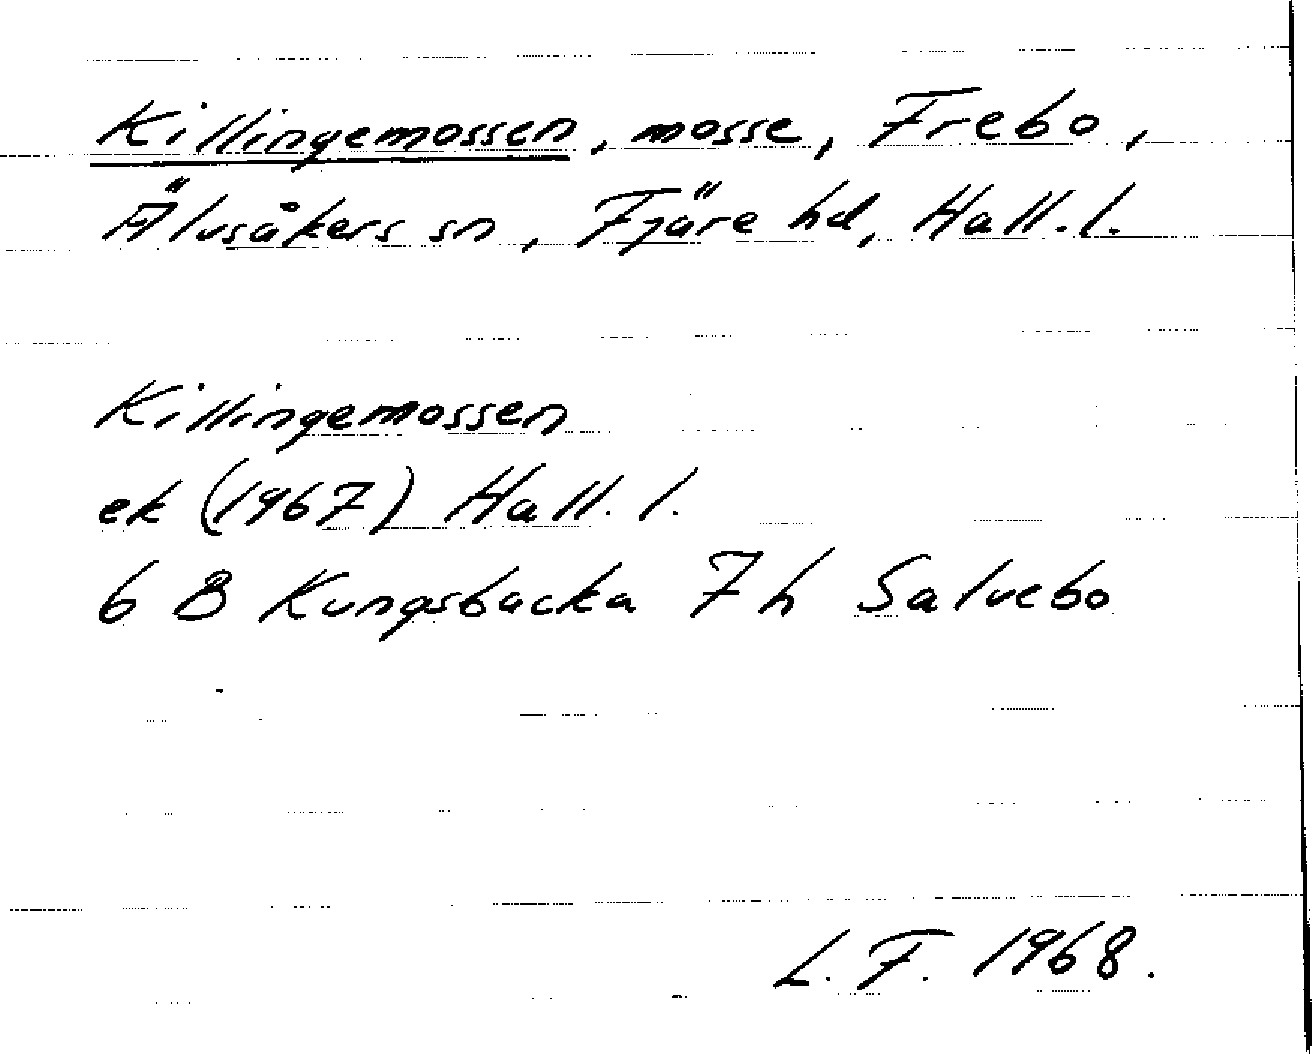 Killingemossen, mosse, Frebo,
Älvsåkers sn, Fjäre hd, Hall. l.
Killingemossen
ek (1967) Hall. l.
6 B Kungsbacka 7 h Salvebo
L. F. 1968.